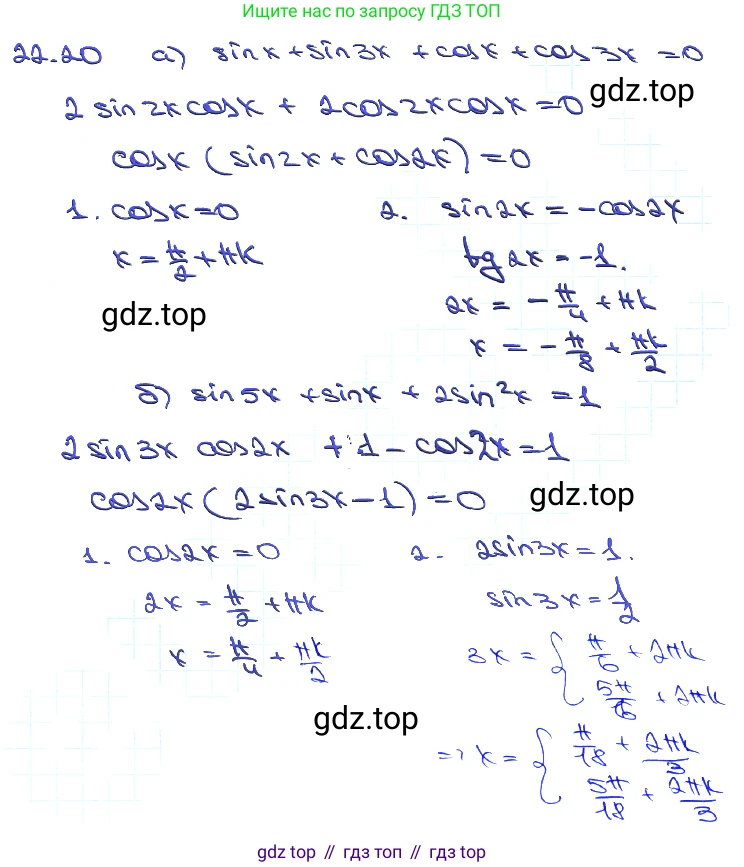 Ищите нас по запросу ГДЗ ТОП
22.20 а) sinx + sin3x + cosx + cos3x = 0
2 sin2x cosx + 2cos2x cosx = 0
gdz.top
cosx (sin2x + cos2x) = 0
1. cosx = 0 2. sin2x = -cos2x
x = π/2 + πk tg2x = -1.
gdz.top 2x = -π/4 + πk
x = -π/8 + πk/2
б) sin5x + sinx + 2sin²x = 1
2 sin3x cos2x + 1 - cos2x = 1
cos2x (2sin3x - 1) = 0 gdz.top
1. cos2x = 0 2. 2sin3x = 1.
2x = π/2 + πk sin3x = 1/2
x = π/4 + πk/2 3x = { π/6 + 2πk
5π/6 + 2πk
gdz.top
=> x = { π/18 + 2πk/3
5π/18 + 2πk/3
gdz.top // гдз топ // гдз.топ